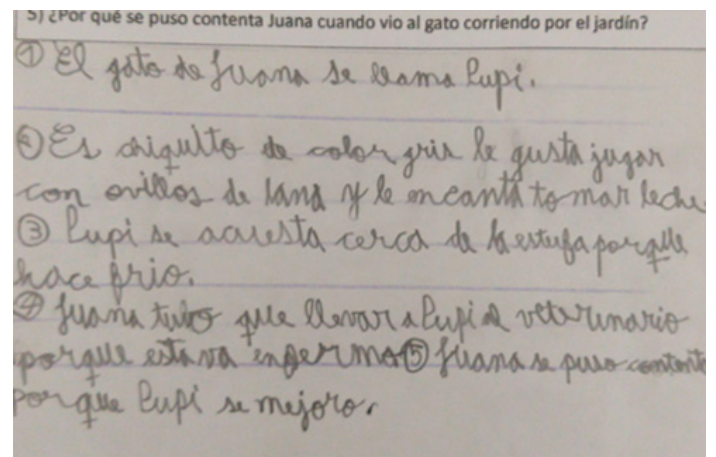 5) ¿Por qué se puso contenta Juana cuando vio al gato corriendo por el jardín?
① El gato de Juana se llama Lupi.
② Es chiquito de color gris le gusta jugar
con ovillos de lana y le encanta tomar leche.
③ Lupi se acuesta cerca de la estufa porque
hace frio.
④ Juana tubo que llevar a Lupi al veterinario
porque estava enfermo ⑤ Juana se puso contenta
porque Lupi se mejoro.